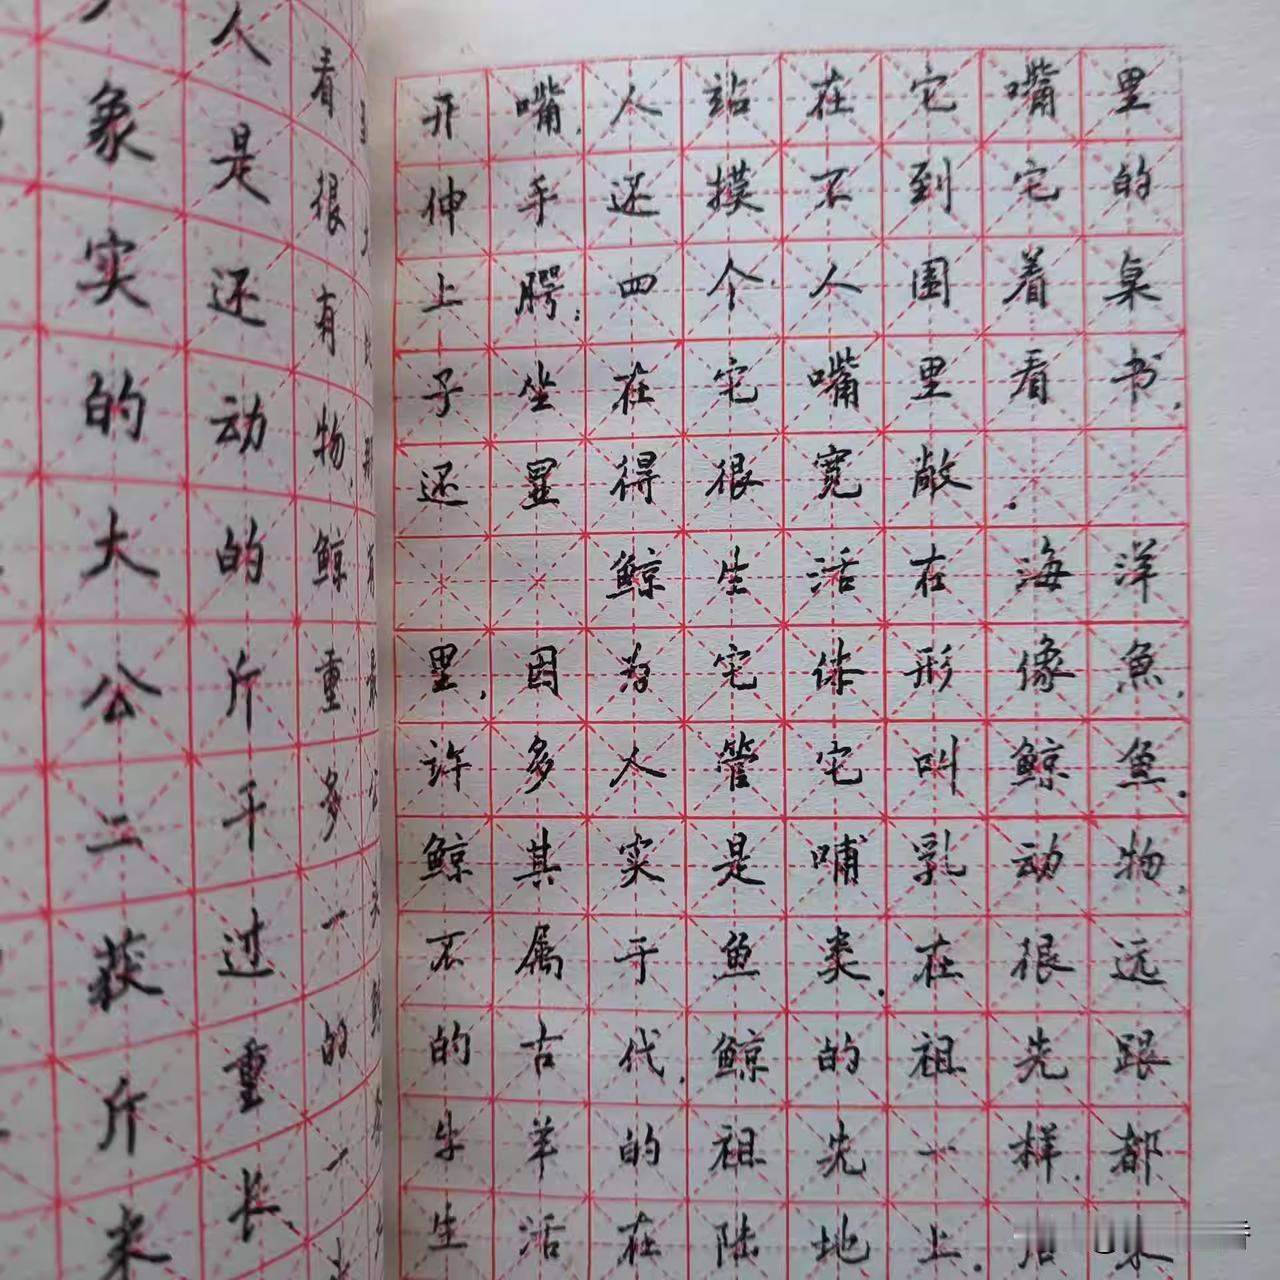 人看
象是很
实还有
的动物,
大的鲸
公斤重
二千多
获过一
斤重的
米长一
开嘴,人站在它嘴里
伸手还摸不到它的
上腭;四个人围着桌
子坐在它嘴里看书,
还显得很宽敞.
鲸生活在海洋
里,因为它体形像鱼,
许多人管它叫鲸鱼.
鲸其实是哺乳动物,
不属于鱼类.在很远
的古代,鲸的祖先跟
牛羊的祖先一样,都
生活在陆地上.